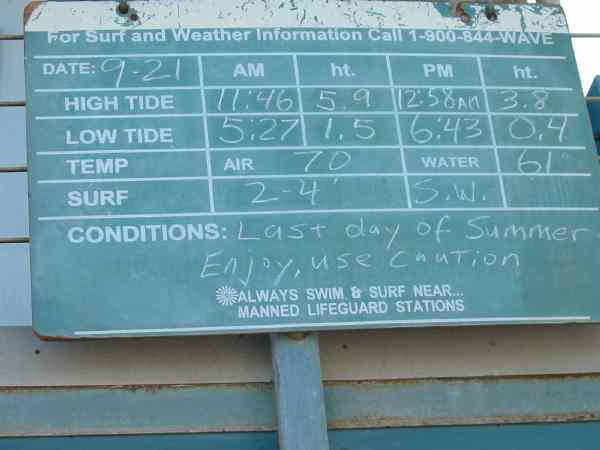 For Surf and Weather Information Call 1-900-844-WAVE
DATE: 9-21 AM ht. PM ht.
HIGH TIDE 11:46 5.9 12:58AM 3.8
LOW TIDE 5:27 1.5 6:43 0.4
TEMP AIR 70 WATER 61°
SURF 2-4' S.W.
CONDITIONS: Last day of Summer
Enjoy, use Caution
ALWAYS SWIM & SURF NEAR...
MANNED LIFEGUARD STATIONS